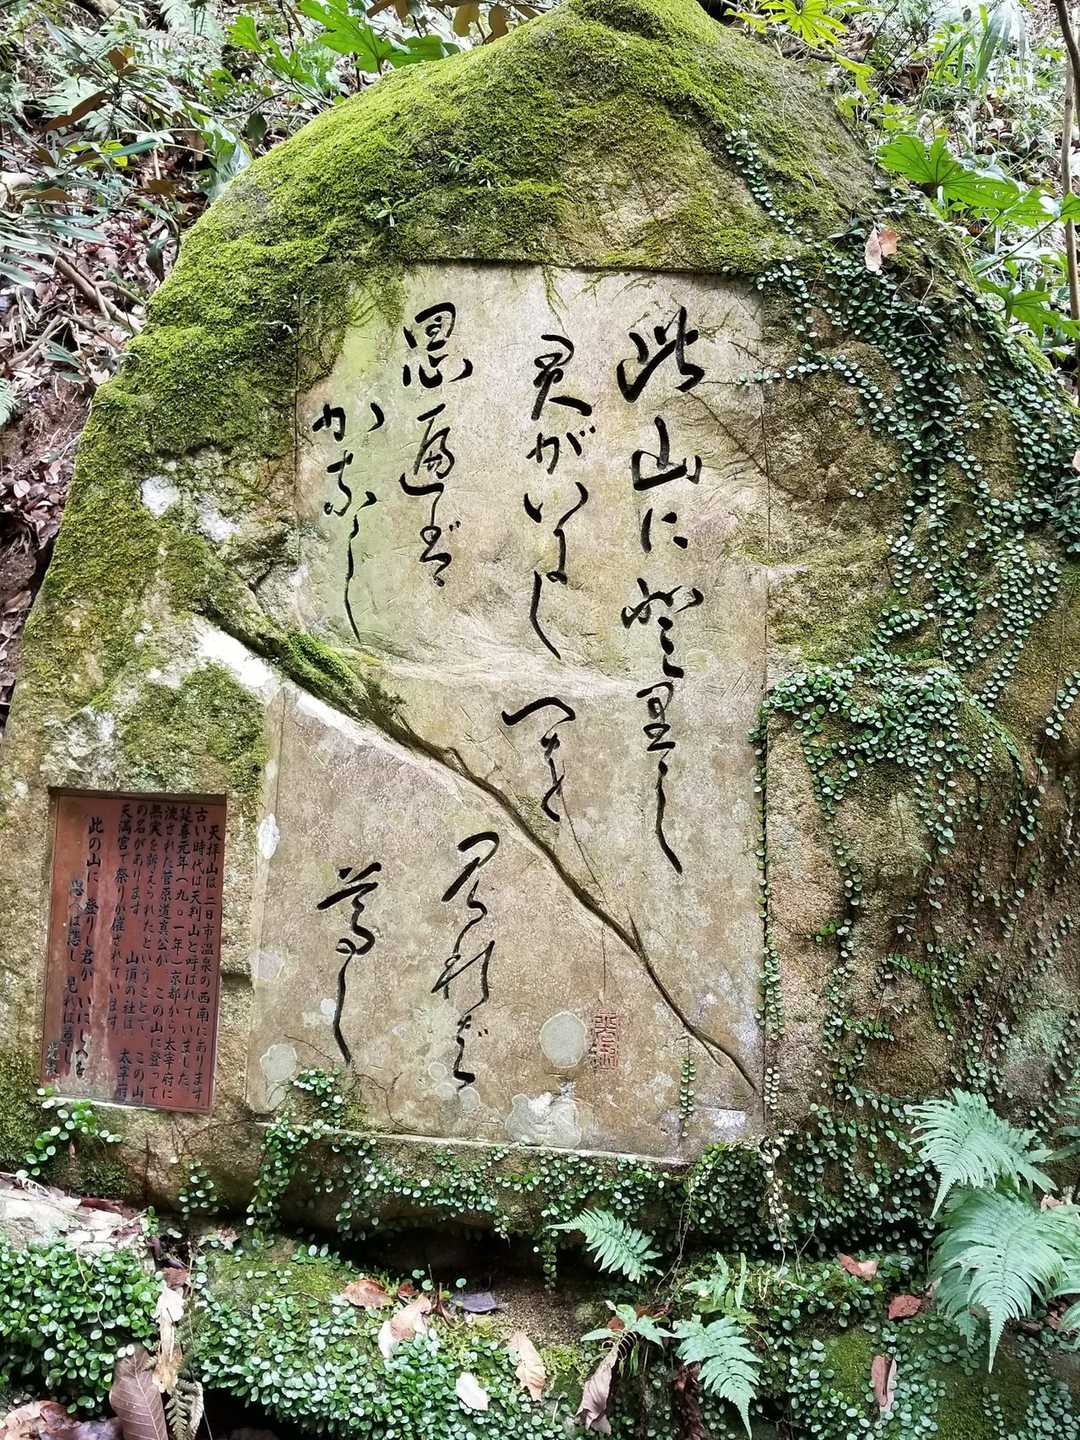 此山に登里し
君がいにしへを
思遍ば
かなし
見れば
尊し
天拝山は二日市温泉の西南にあります
古い時代は天判山と呼ばれていました。
延喜元年(九〇一年)京都から太宰府に
流された菅原道真公が この山に登って
無実を訴えられたということで この山
の名があります 山頂の社は 太宰府
天満宮で祭りが催されています
此の山に 登りし君が いにしへを
思へば悲し 見れば尊し